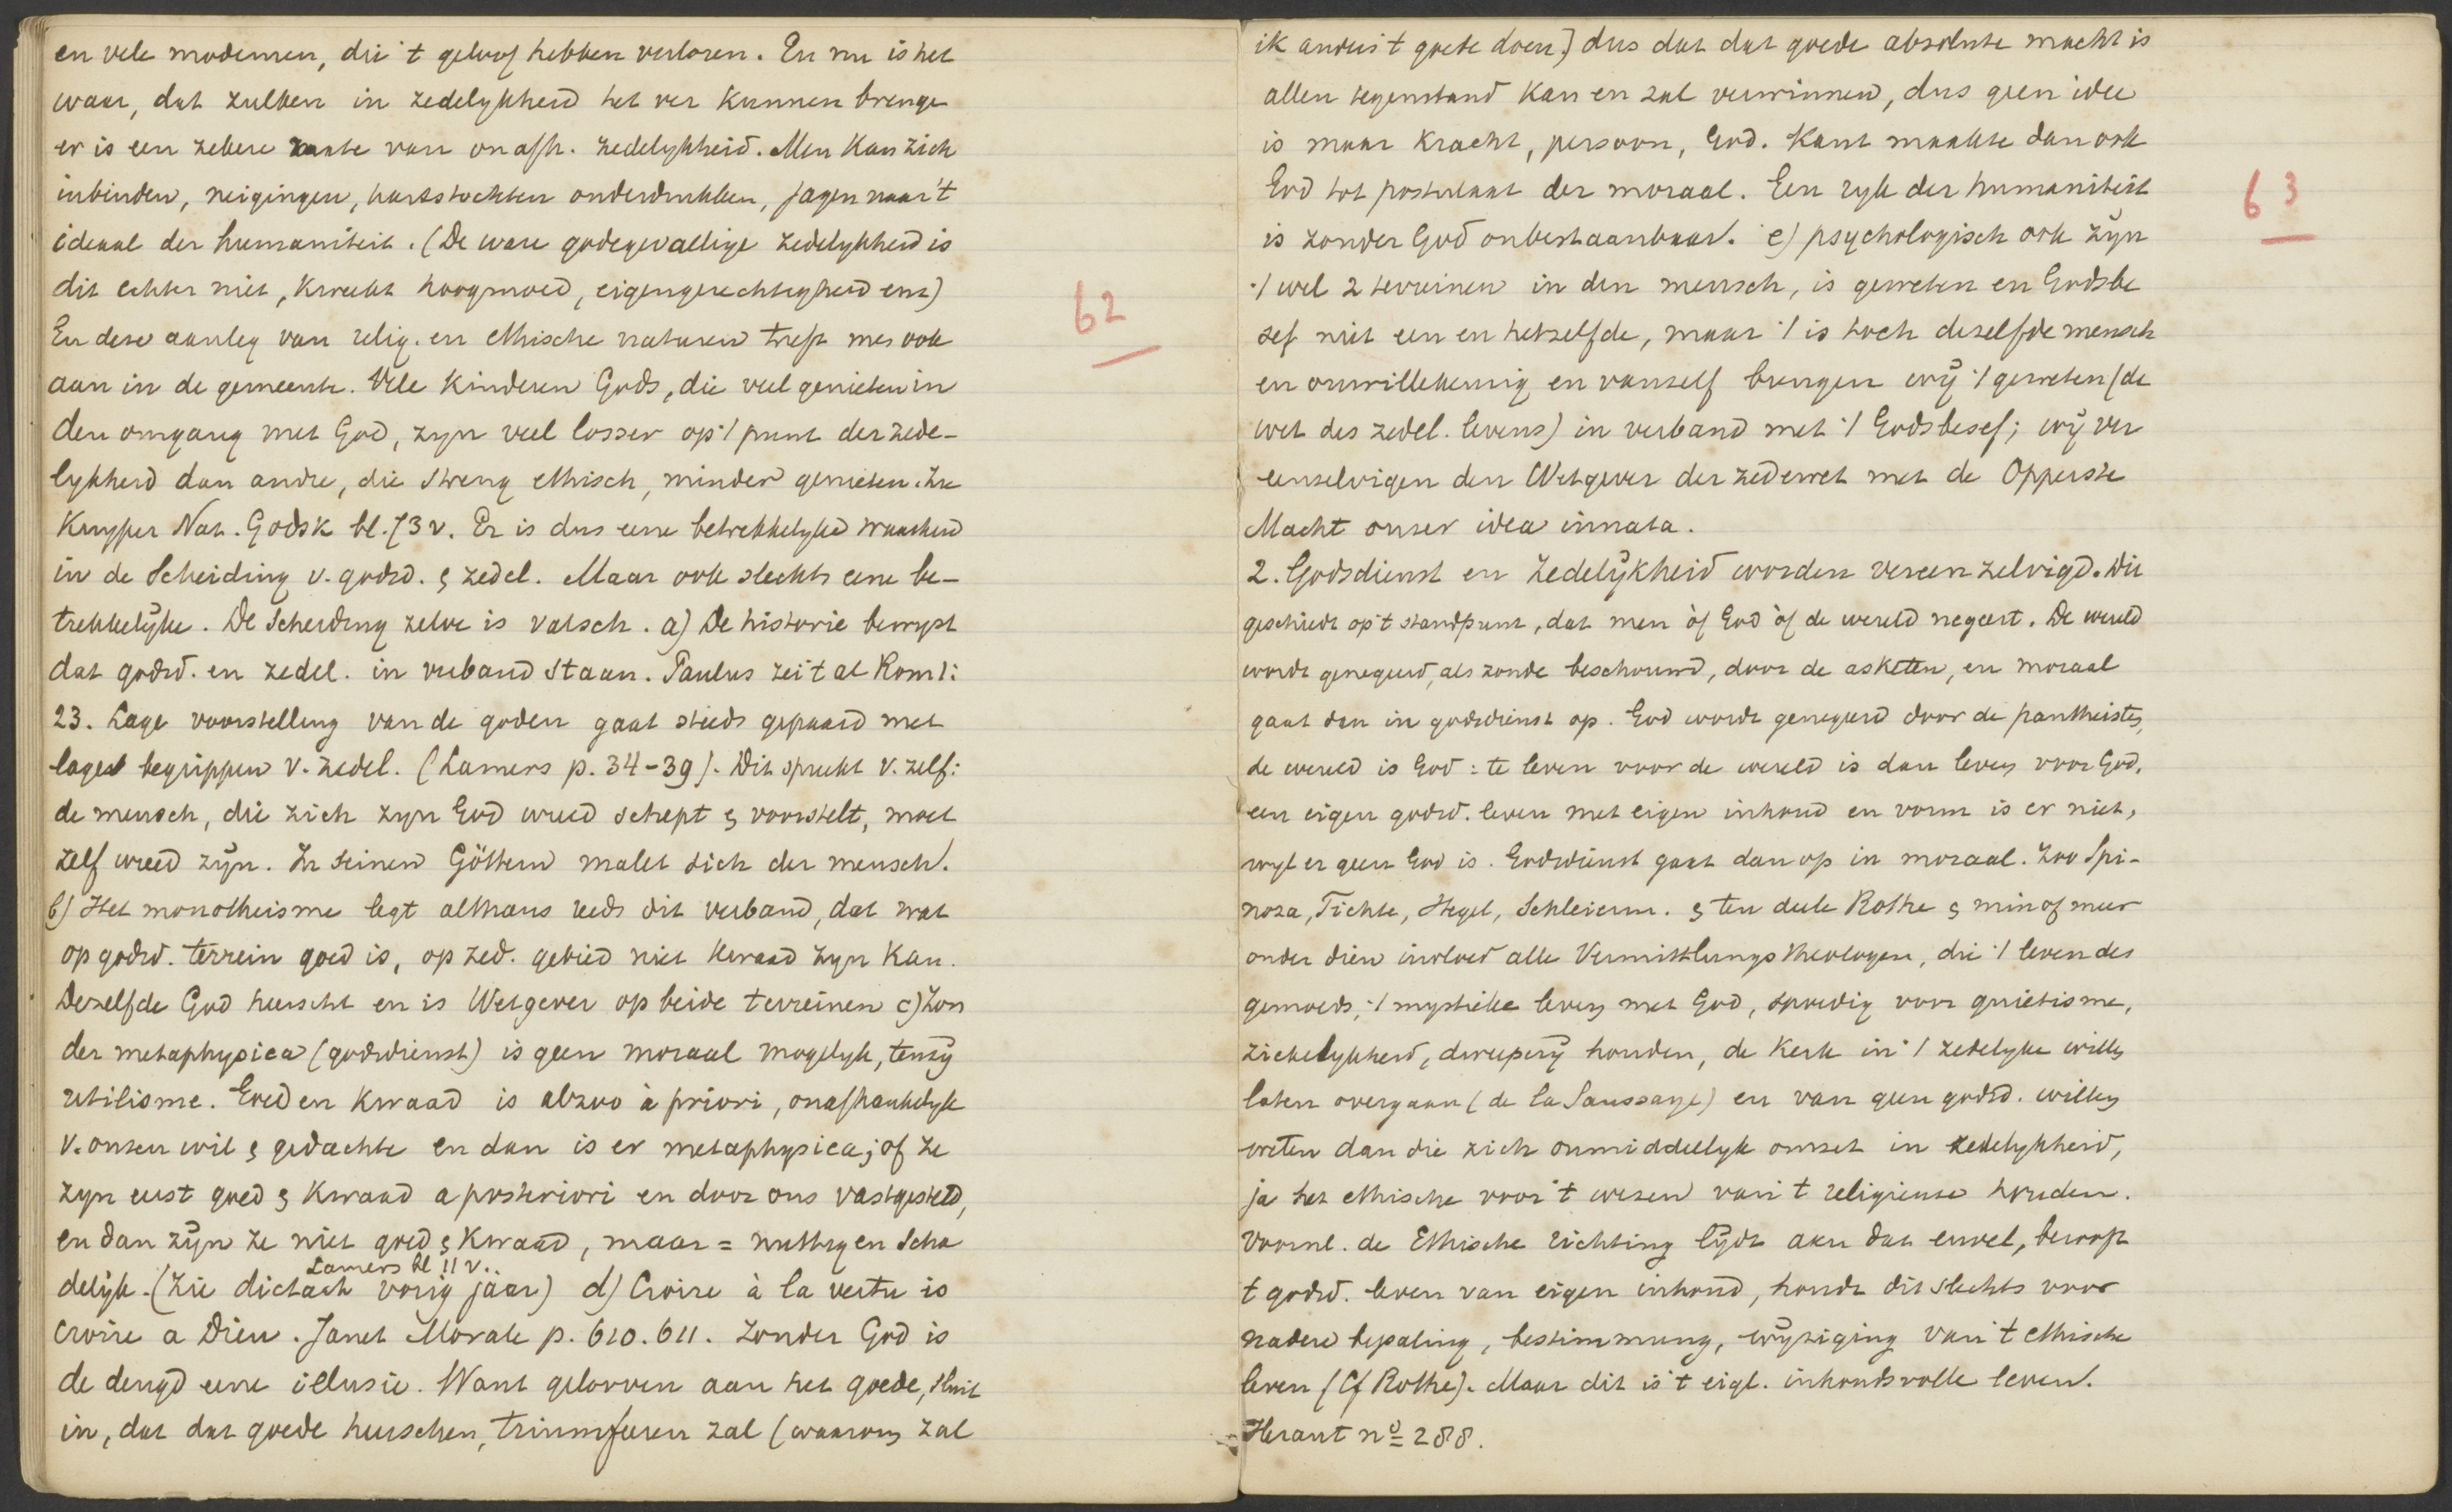 en vele modernen, die 't geloof hebben verloren. En nu is het
waar, dat zulken in zedelykheid het ver kunnen brengen
er is een zekere mate van onafh. zedelykheid. Men kan zich
inbinden, neigingen, hartstochten onderdrukken, jagen naar 't
ideaal der humaniteit. (De ware godegevallige zedelykheid is
dit echter niet, kweekt hoogmoed, eigengerechtigheid enz)
En deze aanleg van relig. en ethische naturen treft men ook
aan in de gemeente. Vele kinderen Gods, die veel genieten in
den omgang met God, zyn veel losser op 't punt der zede-
lykheid dan andre, die streng ethisch, minder genieten. Zie
Kuyper Nat. Godsk bl. 73 v. Er is dus eene betrekkelyke waarheid
in de scheiding v. godsd. & zedel. Maar ook slechts eene be-
trekkelijke. De scheiding zelve is valsch. a) De historie bewyst
dat godsd. en zedel. in verband staan. Paulus zei 't al Rom 1:
23. Lage voorstelling van de goden gaat steeds gepaard met
lage begrippen v. zedel. (Lamers p. 34-39). Dit spreekt v. zelf:
de mensch, die zich zyn God wreed schept & voorstelt, moet
zelf wreed zijn. In seinen Göttern malet sich der mensch.
b) Het monotheisme legt althans reeds dit verband, dat wat
op godsd. terrein goed is, op zed. gebied niet kwaad zyn kan.
Dezelfde God heerscht en is Wetgever op beide terreinen c) Zon
der metaphysica (godsdienst) is geen moraal mogelyk, tenzij
utilisme. Goed en kwaad is alzoo à priori, onafhankelyk
v. onzen wil & gedachte en dan is er metaphysica; of ze
zyn eerst goed & kwaad a posteriori en door ons vastgesteld,
en dan zijn ze niet goed & kwaad, maar = nuttig en scha
Lamers bl 11 v..
delijk. (zie dictaat vorig jaar) d) Croire à la vertu is
croire a Dieu. Janet Morale p. 610. 611. Zonder God is
de deugd eene illusie. Want gelooven aan het goede, sluit
in, dat dat goede heerschen, triumfeeren zal (waarom zal
62
ik anders 't goede doen) dus dat dat goede absolute macht is
allen tegenstand kan en zal overwinnen, dus geen idee
is maar kracht, persoon, God. Kant maakte dan ook
God tot postulaat der moraal. Een ryk der humaniteit
is zonder God onbestaanbaar. e) psychologisch ook zijn
't wel 2 terreinen in den mensch, is geweten en Godsbe
sef niet een en hetzelfde, maar 't is toch dezelfde mensch
en onwillekeurig en vanzelf brengen wij 't geweten (de
wet des zedel. levens) in verband met 't Godsbesef; wij ver
eenzelvigen den Wetgever der zedewet met de Opperste
Macht onzer idea innata.
2. Godsdienst en zedelijkheid worden vereenzelvigd. Dit
geschiedt op 't standpunt, dat men òf God òf de wereld negeert. De wereld
wordt genegeerd, als zonde beschouwd, door de asketen, en moraal
gaat dan in godsdienst op. God wordt genegeerd door de pantheisten,
de wereld is God: te leven voor de wereld is dan leven voor God,
een eigen godsd. leven met eigen inhoud en vorm is er niet,
wyl er geen God is. Godsdienst gaat dan op in moraal. Zoo Spi-
noza, Fichte, Hegel, Schleierm. & ten deele Rothe & min of meer
onder dien invloed alle Vermittlungstheologen, die 't leven des
gemoeds, 't mystieke leven met God, spoedig voor quietisme,
ziekelykheid, dweeperij houden, de kerk in 't zedelyke willen
laten overgaan (de la Saussaye) en van geen godsd. willen
weten dan die zich onmiddellyk omzet in zedelykheid,
ja het ethische voor 't wezen van 't religieuse houden.
Voornl. de Ethische richting lijdt aan dat euvel, berooft
t godsd. leven van eigen inhoud, houdt dit slechts voor
nadere bepaling, bestimmung, wijziging van 't ethische
leven (Cf Rothe). Maar dit is 't eigl. inhoudsvolle leven.
Heraut no 288.
63